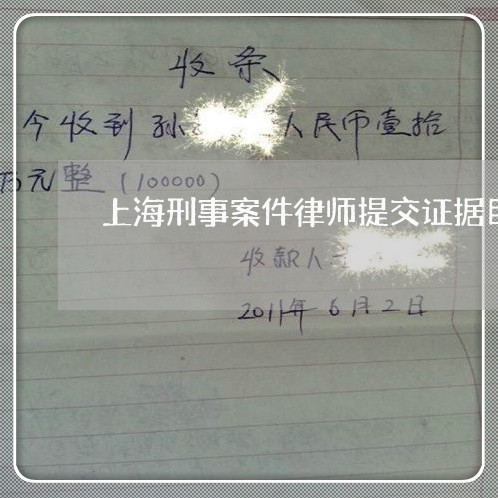 收条
今收到孙 人民币壹拾
万元整（100000）
上海刑事案件律师提交证据
收款人
2011年6月2日